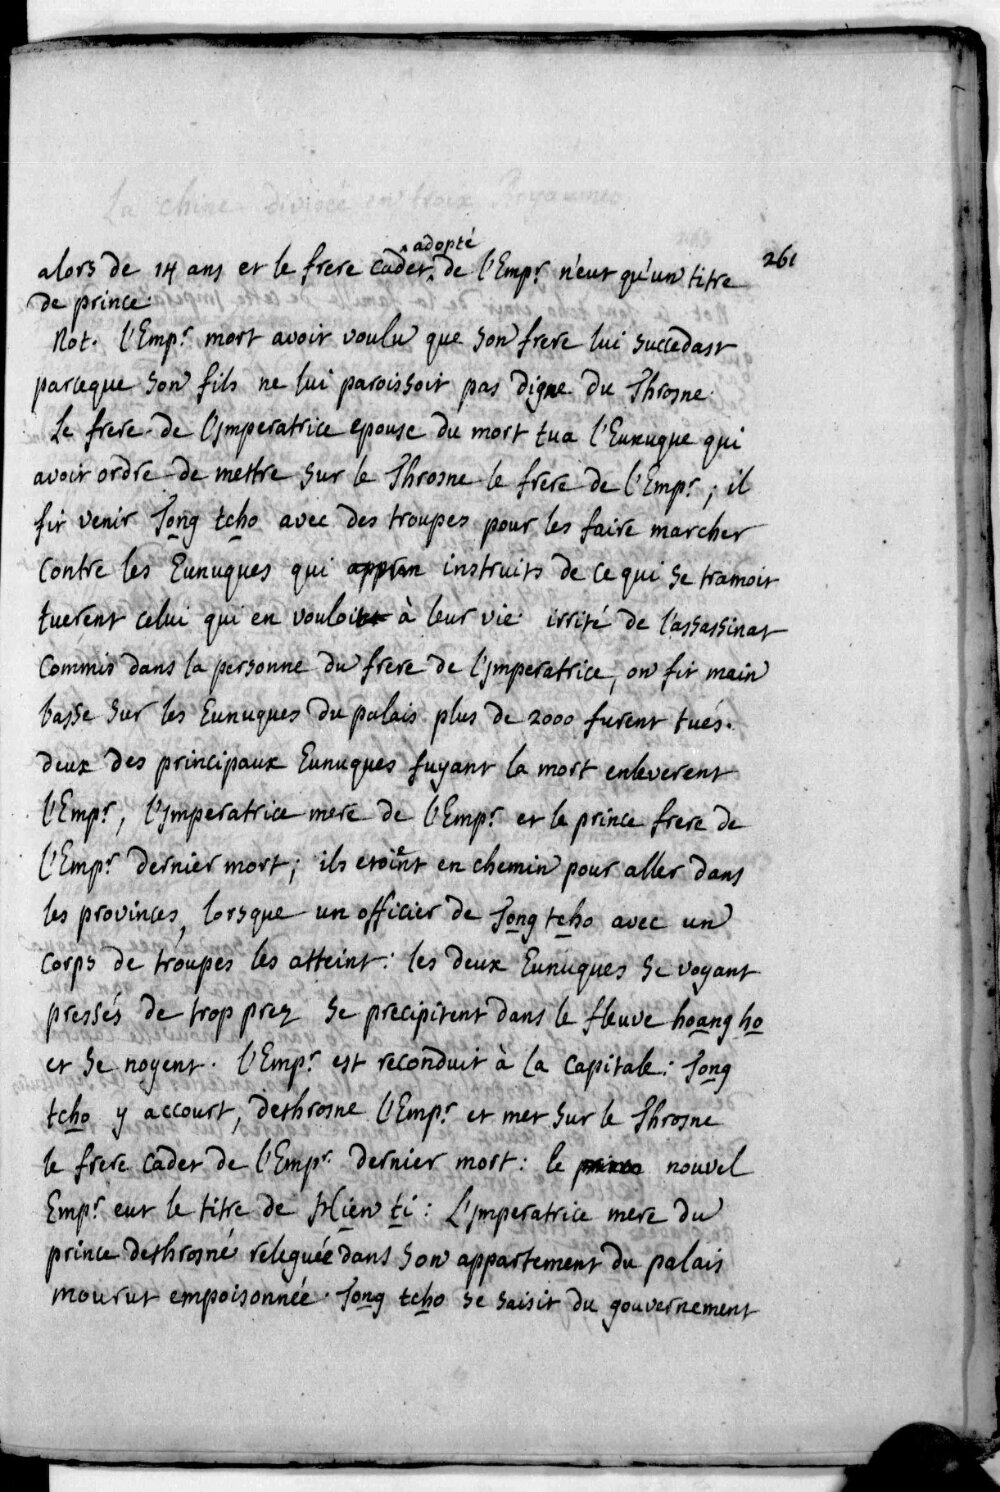 261
alors de 14 ans et le frere cadet adopté de l'Empr. n'eut qu'un titre
de prince.
Not. l'Empr. mort avoit voulu que son frere lui succedast
parceque son fils ne lui paroissoit pas digne du Throsne.
Le frere de l'Imperatrice epouse du mort tua l'Eunuque qui
avoit ordre de mettre sur le Throsne le frere de l'Empr., il
fit venir Tong tcho avec des troupes pour les faire marcher
contre les Eunuques qui instruits de ce qui se tramoit
tuerent celui qui en vouloit à leur vie. irrité de l'assassinat
commis dans la personne du frere de l'Imperatrice, on fit main
basse sur les Eunuques du palais plus de 2000 furent tués.
deux des principaux Eunuques fuyant la mort enleverent
l'Empr., l'Imperatrice mere de l'Empr. et le prince frere de
l'Empr. dernier mort; ils etoient en chemin pour aller dans
les provinces, lorsque un officier de Tong tcho avec un
corps de troupes les atteint: les deux Eunuques se voyant
pressés de trop prez se precipitent dans le fleuve hoang ho
et se noyent. l'Empr. est reconduit à la capitale: Tong
tcho y accourt, dethrosne l'Empr. et met sur le Throsne
le frere cadet de l'Empr. dernier mort: le nouvel
Empr. eut le titre de Hien ti: L'Imperatrice mere du
prince dethrosné releguée dans son appartement du palais
mourut empoisonnée. Tong tcho se saisit du gouvernement